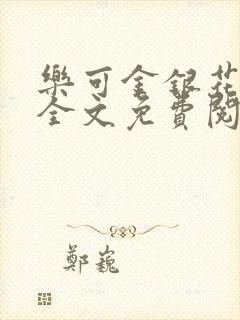 樂可金銀花
全文免費閱
鄭巍